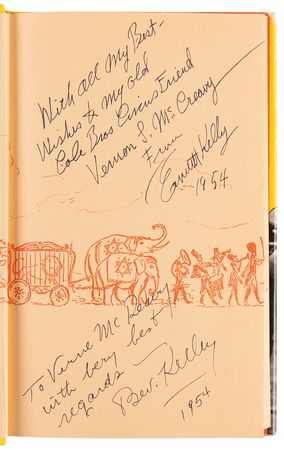 With all My Best
Wishes to my old
Cole Bros Circus Friend
Vernon L. McCreavy
From
Emmett Kelly
1954
To Verne McReavy
with very best
regards —
Bev. Kelley
1954